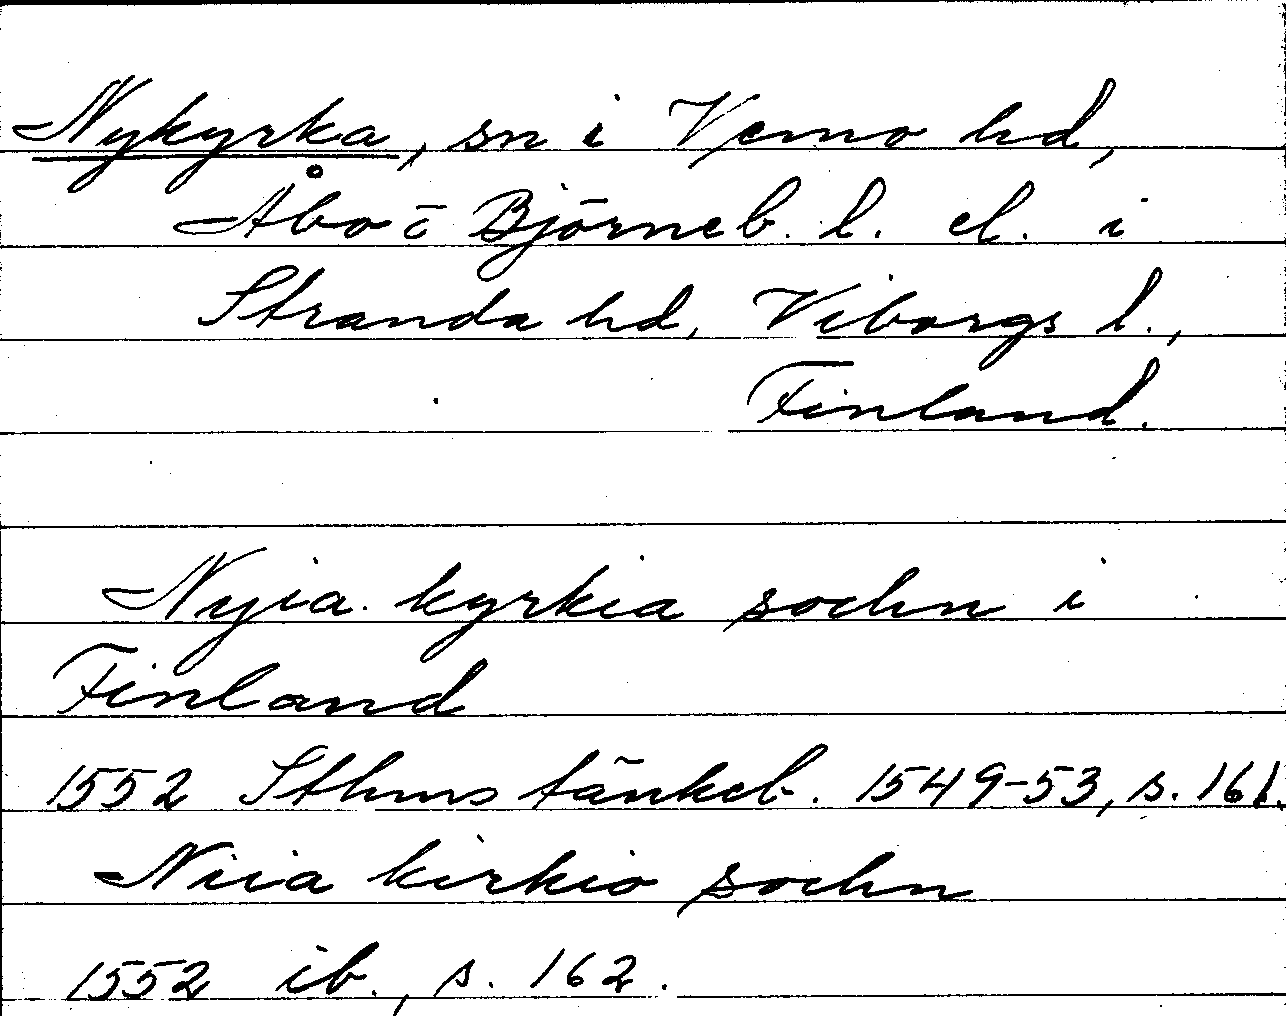 Nykyrka, sn i Vemo hd,
Åbo o Björneb. l. el. i
Stranda hd, Viborgs l.,
Finland.
Nyia kyrkia sochn i
Finland
1552 Sthms tänkeb. 1549-53, s. 161.
Niia kirkio sochn
1552 ib., s. 162.